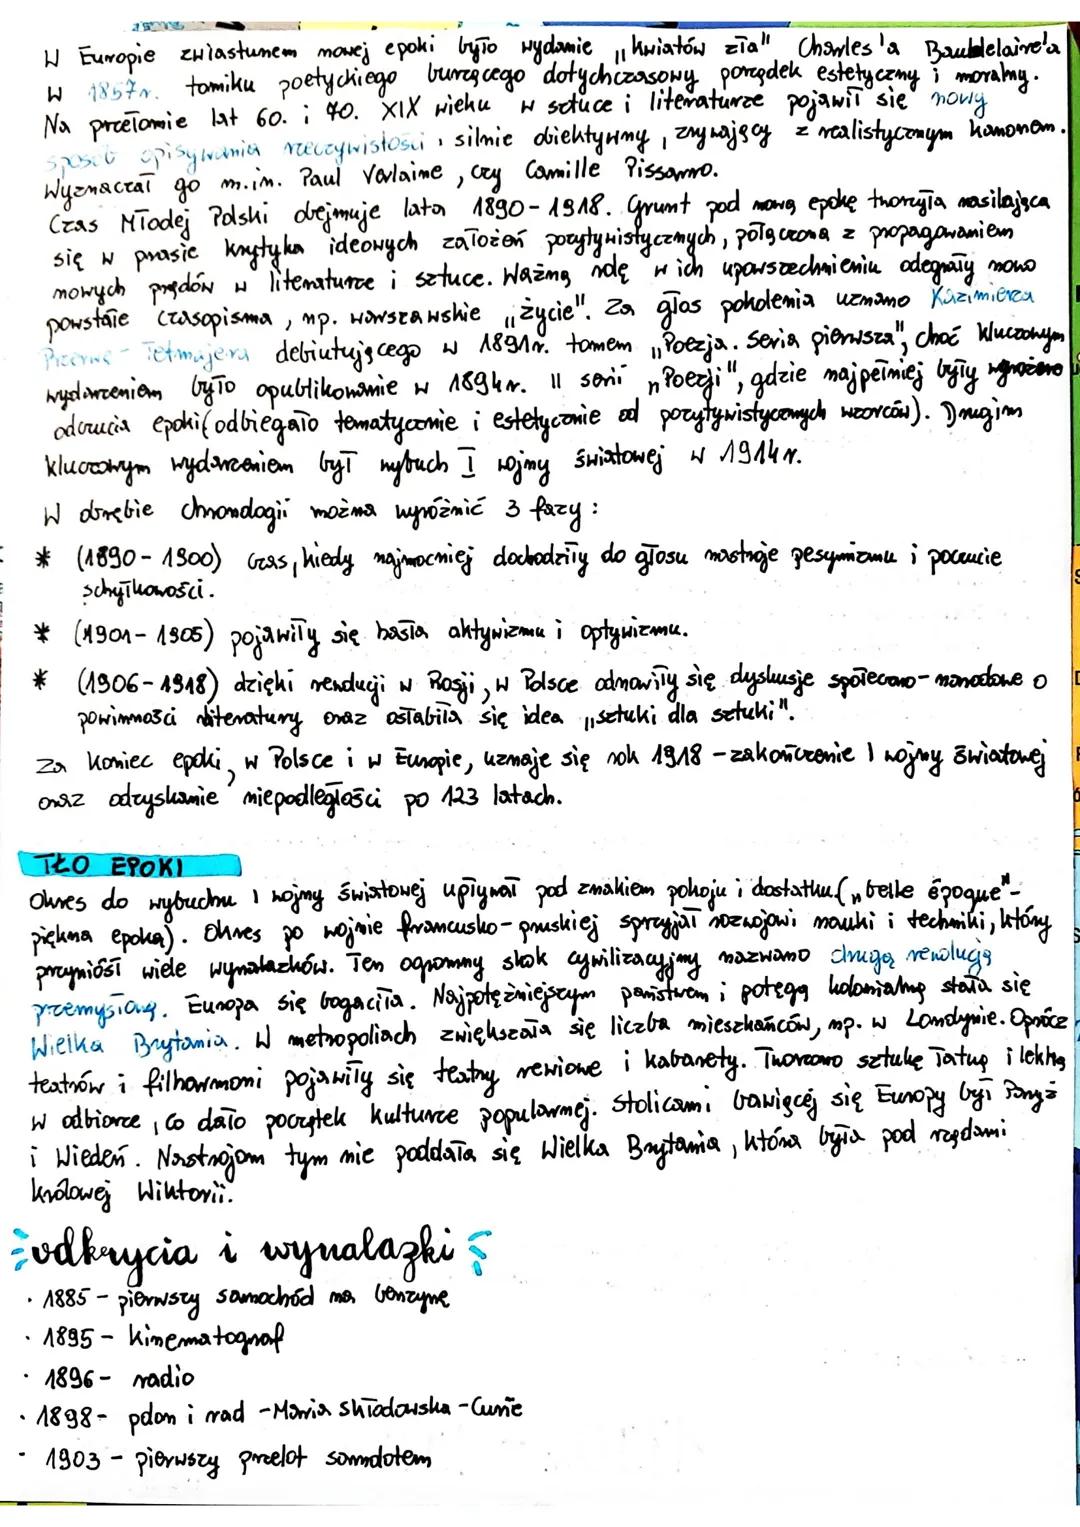 W Europie zwiastunem nowej epoki było wydanie „Kwiatów zła" Charles'a Baudelaire'a
w 1857r. tomiku poetyckiego burzącego dotychczasowy porządek estetyczny i moralny.
Na przełomie lat 60. i 70. XIX wieku w sztuce i literaturze pojawił się nowy
sposób opisywania rzeczywistości, silnie obiektywny, zrywający z realistycznym kanonem.
Wyznaczał go m.in. Paul Verlaine, czy Camille Pissarro.
Czas Młodej Polski obejmuje lata 1890-1918. Grunt pod nową epokę tworzyła nasilająca
się w prasie krytyka ideowych założeń pozytywistycznych, połączona z propagowaniem
nowych prądów w literaturze i sztuce. Ważną rolę w ich upowszechnieniu odegrały nowo
powstałe czasopisma, np. warszawskie „Życie". Za głos pokolenia uznano Kazimierza
Przerwę-Tetmajera debiutującego w 1891r. tomem „Poezja. Seria pierwsza", choć kluczowym
wydarzeniem było opublikowanie w 1894r. II serii „Poezji", gdzie najpełniej były wyrażone
odczucia epoki (odbiegało tematycznie i estetycznie od pozytywistycznych wzorców). Drugim
kluczowym wydarzeniem był wybuch I wojny światowej w 1914r.
W obrębie chronologii można wyróżnić 3 fazy:
* (1890-1900) czas, kiedy najmocniej dochodziły do głosu nastroje pesymizmu i poczucie
schyłkowości.
* (1901-1905) pojawiły się hasła aktywizmu i optywizmu.
* (1906-1918) dzięki rewolucji w Rosji, w Polsce odnowiły się dyskusje społeczno-narodowe o
powinności literatury oraz osłabiła się idea „sztuki dla sztuki".
Za koniec epoki, w Polsce i w Europie, uznaje się rok 1918 - zakończenie I wojny światowej
oraz odzyskanie niepodległości po 123 latach.
TŁO EPOKI
Okres do wybuchu I wojny światowej upływał pod znakiem pokoju i dostatku („belle époque"-
piękna epoka). Okres po wojnie francusko-pruskiej sprzyjał rozwojowi nauki i techniki, który
przyniósł wiele wynalazków. Ten ogromny skok cywilizacyjny nazwano drugą rewolucją
przemysłową. Europa się bogaciła. Najpotężniejszym państwem i potęgą kolonialną stała się
Wielka Brytania. W metropoliach zwiększała się liczba mieszkańców, np. w Londynie. Oprócz
teatrów i filharmoni pojawiły się teatry rewiowe i kabarety. Tworzono sztukę łatwą i lekką
w odbiorze, co dało początek kulturze popularnej. Stolicami bawiącej się Europy był Paryż
i Wiedeń. Nastrojom tym nie poddała się Wielka Brytania, która była pod rządami
królowej Wiktorii.
odkrycia i wynalazki
· 1885 - pierwszy samochód na benzynę
· 1895 - kinematograf
· 1896 - radio
· 1898 - polon i rad - Maria Skłodowska-Curie
· 1903 - pierwszy przelot samolotem